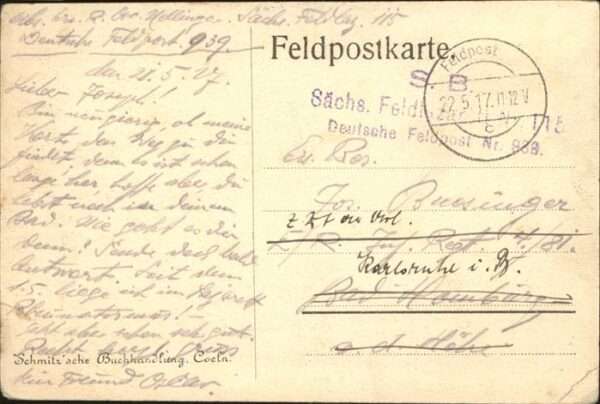 Abs. Ers. R. Osc. Mellinger. Sächs. Feldlaz. 115
Deutsche Feldpost 939.
den 21.5.17.
Lieber Joseph!
Bin neugierig, ob meine
Karte den Weg zu dir
findet, denn es ist schon
lange her, hoffe aber, du
lebst noch in deinem
Bad. Wie geht es dir
denn? Sende doch bald
Antwort. Seit dem
1.5. liege ich im
Rheumatismus!
Geht aber schon sehr gut.
Recht Gruss
dein Freund Oscar.
Schmitz'sche Buchhandlung, Coeln.
Feldpostkarte.
Feldpost
22.5.17. 11-12 V
c
S. B.
Sächs. Feldlazarett Nr. 115
Deutsche Feldpost Nr. 939.
Ers. Res.
Jos. Buesinger
z. Zt.
E/R. Inf. Regt. 4/81.
Karlsruhe i. B.
Bad Homburg
v. d. Höhe